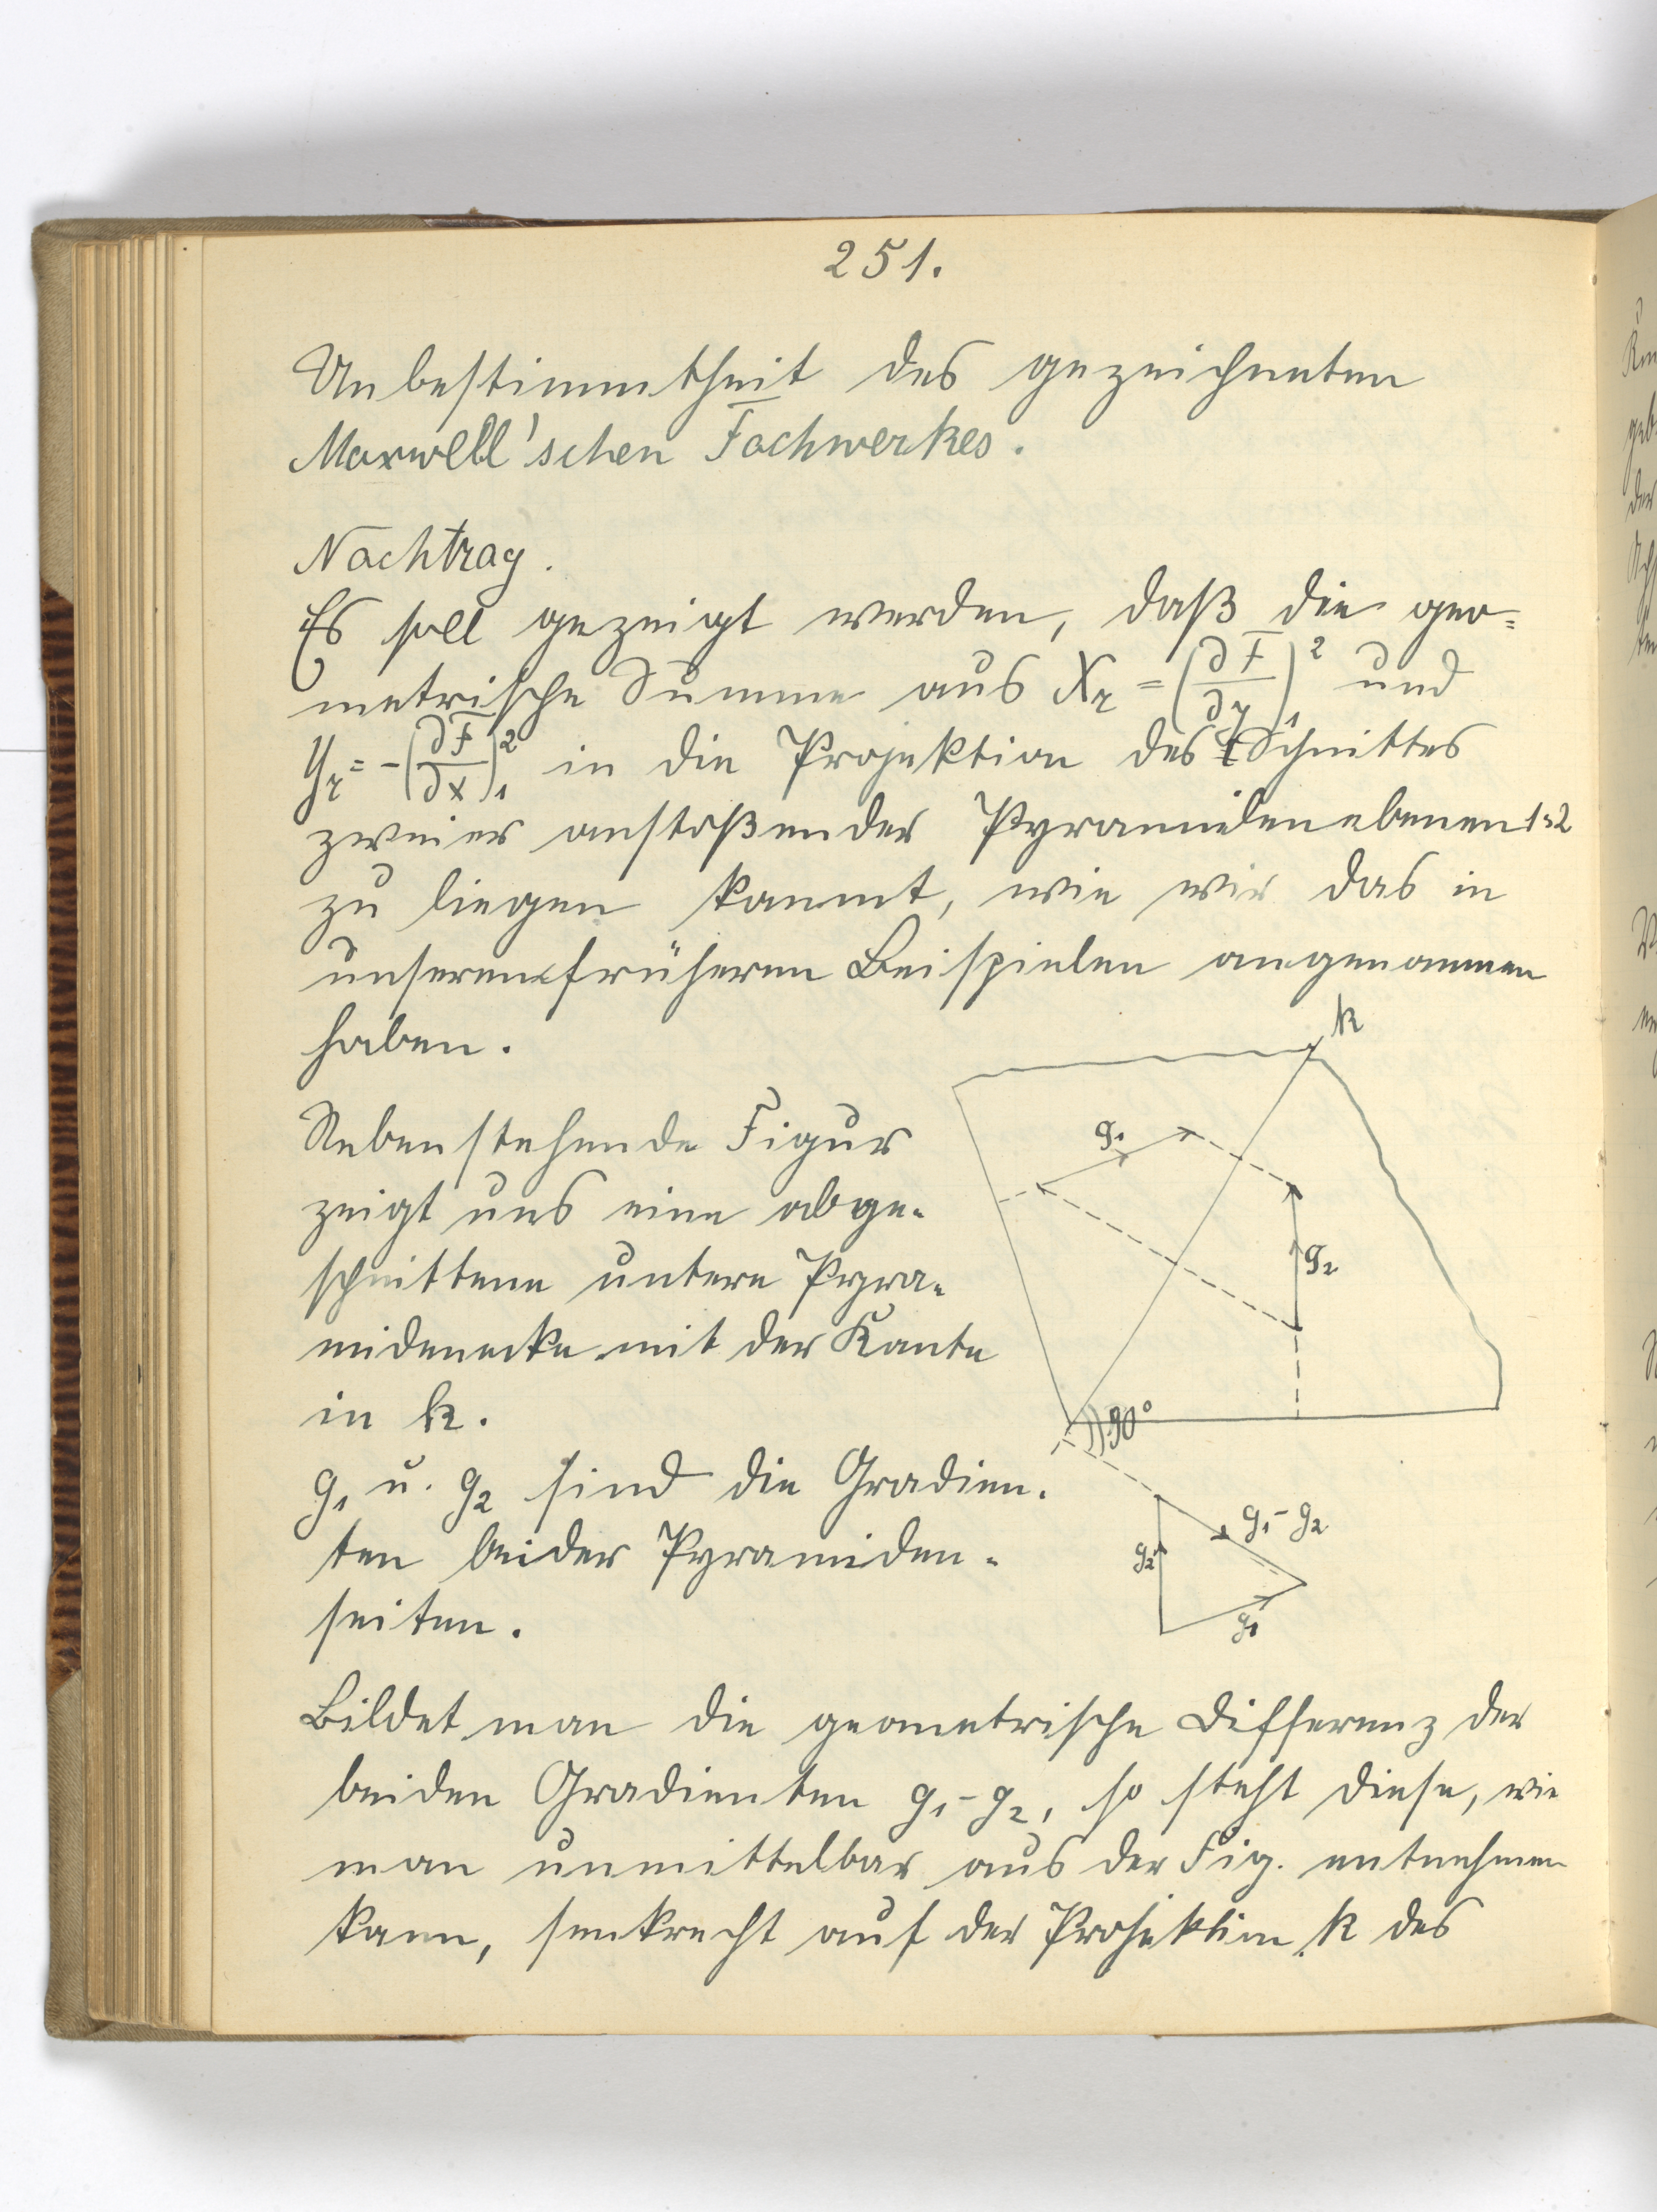 251.
Unbestimmtheit des gezeichneten
Maxwell'schen Fachwerkes.
Nachtrag.
Es soll gezeigt werden, daß die geo=
metrische Summe aus X_r = (∂F/∂y)₁² und
Y_r = -(∂F/∂x)₁² in die Projektion des Schnittes
zweier anstoßender Pyramidenebenen 1=2
zu liegen kommt, wie wir das in
unseren früheren Beispielen angenommen
haben.
k
Nebenstehende Figur
zeigt uns eine abge-
schnittene untere Pyra-
midenecke mit der Kante
in k.
g₁
g₂
90°
g₁ u. g₂ sind die Gradien-
ten beider Pyramiden-
seiten.
g₁-g₂
g₂
g₁
Bildet man die geometrische Differenz der
beiden Gradienten g₁-g₂, so steht diese, wie
man unmittelbar aus der Fig. entnehmen
kann, senkrecht auf der Projektion k des